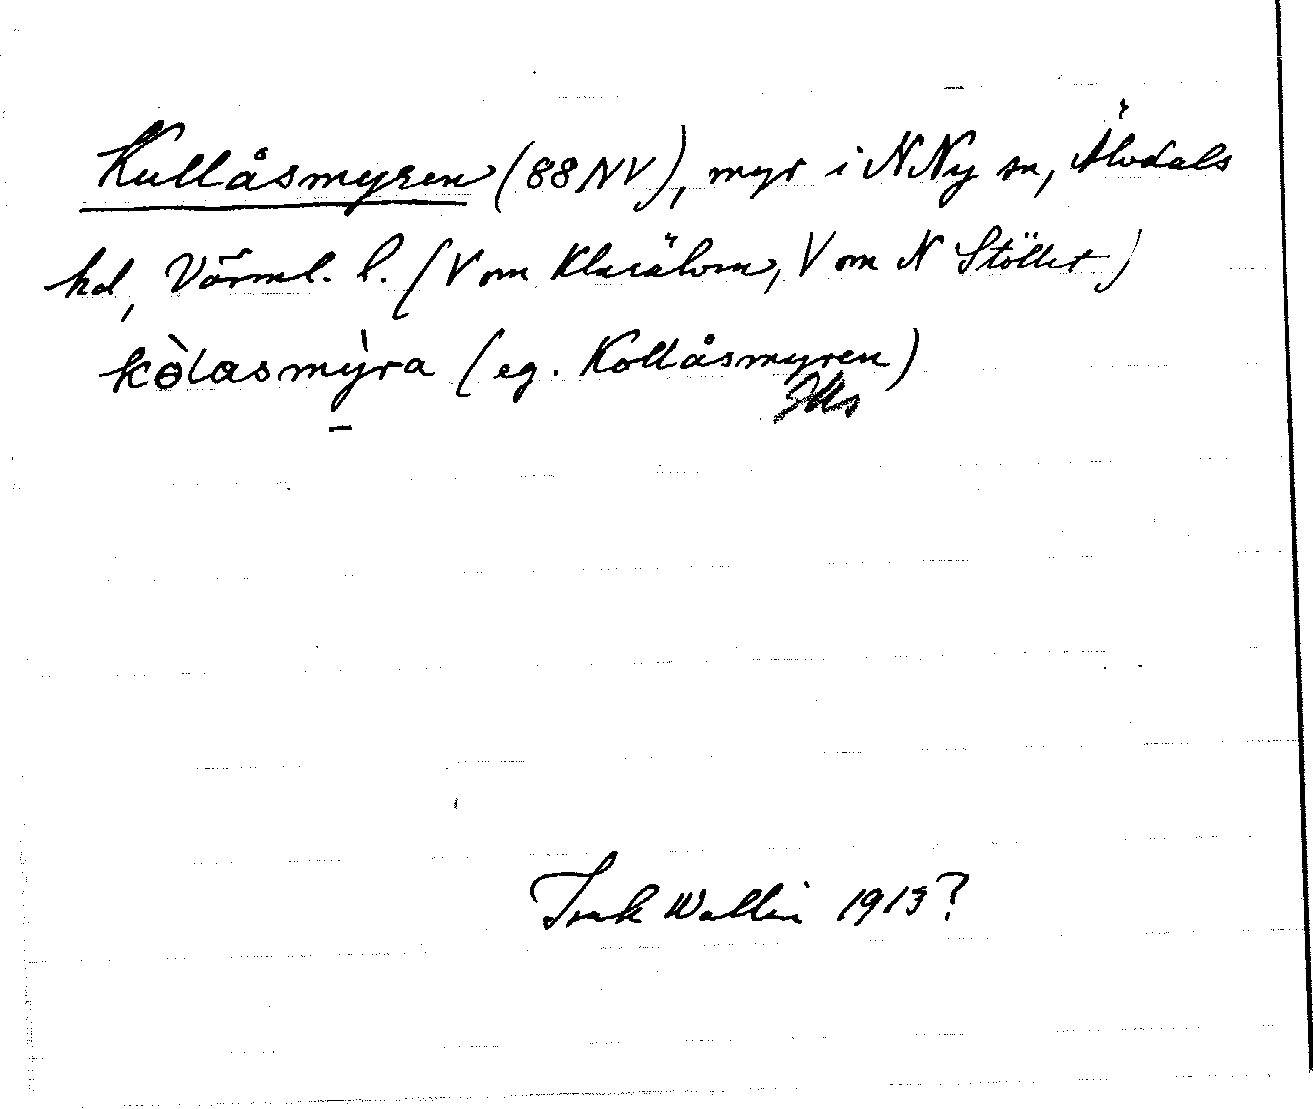 Kullåsmyren (88NV), myr i NNy sn, Älvdals
hd, Värml. l. (V om Klarälven, V om N Stöllet)
kòlasmỳra (eg. Kollåsmyren)
Isak Wallin 1913?